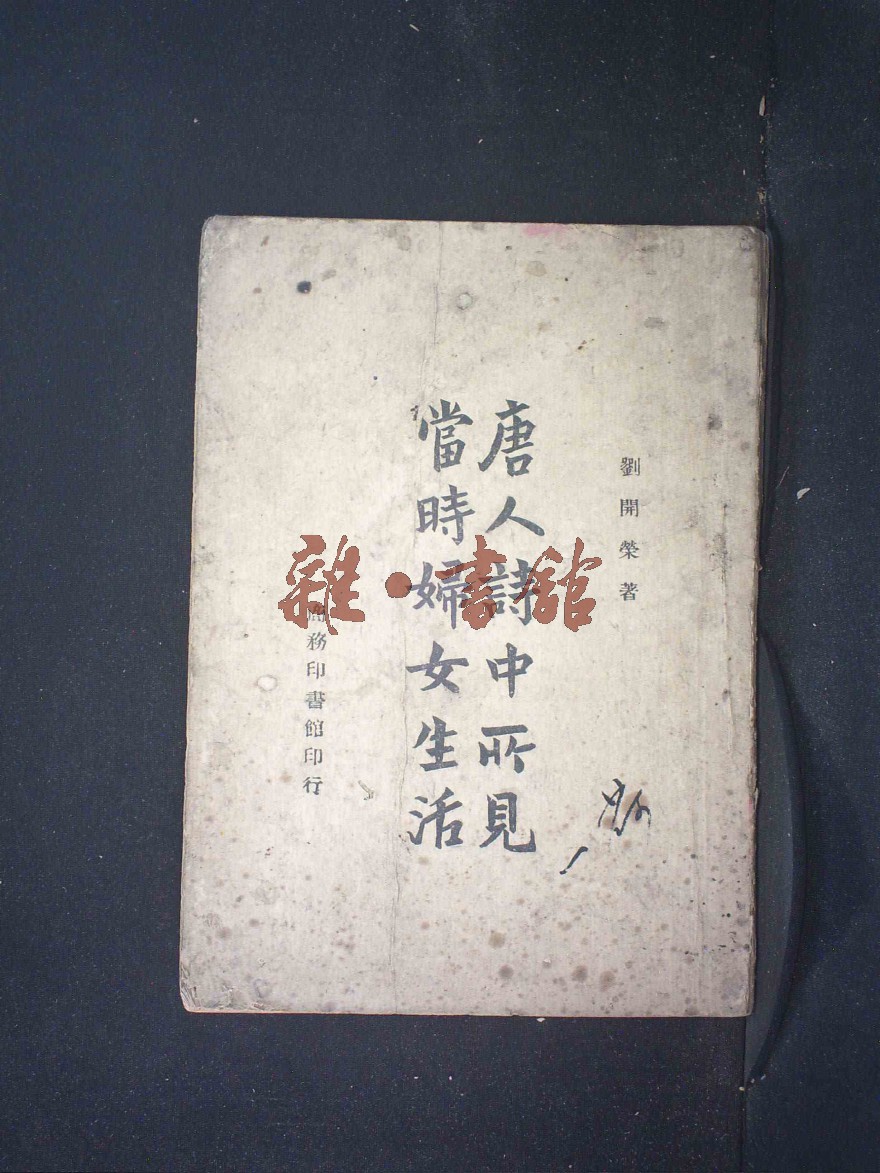 劉開榮著
唐人詩中所見
當時婦女生活
商務印書館印行
雜·書館